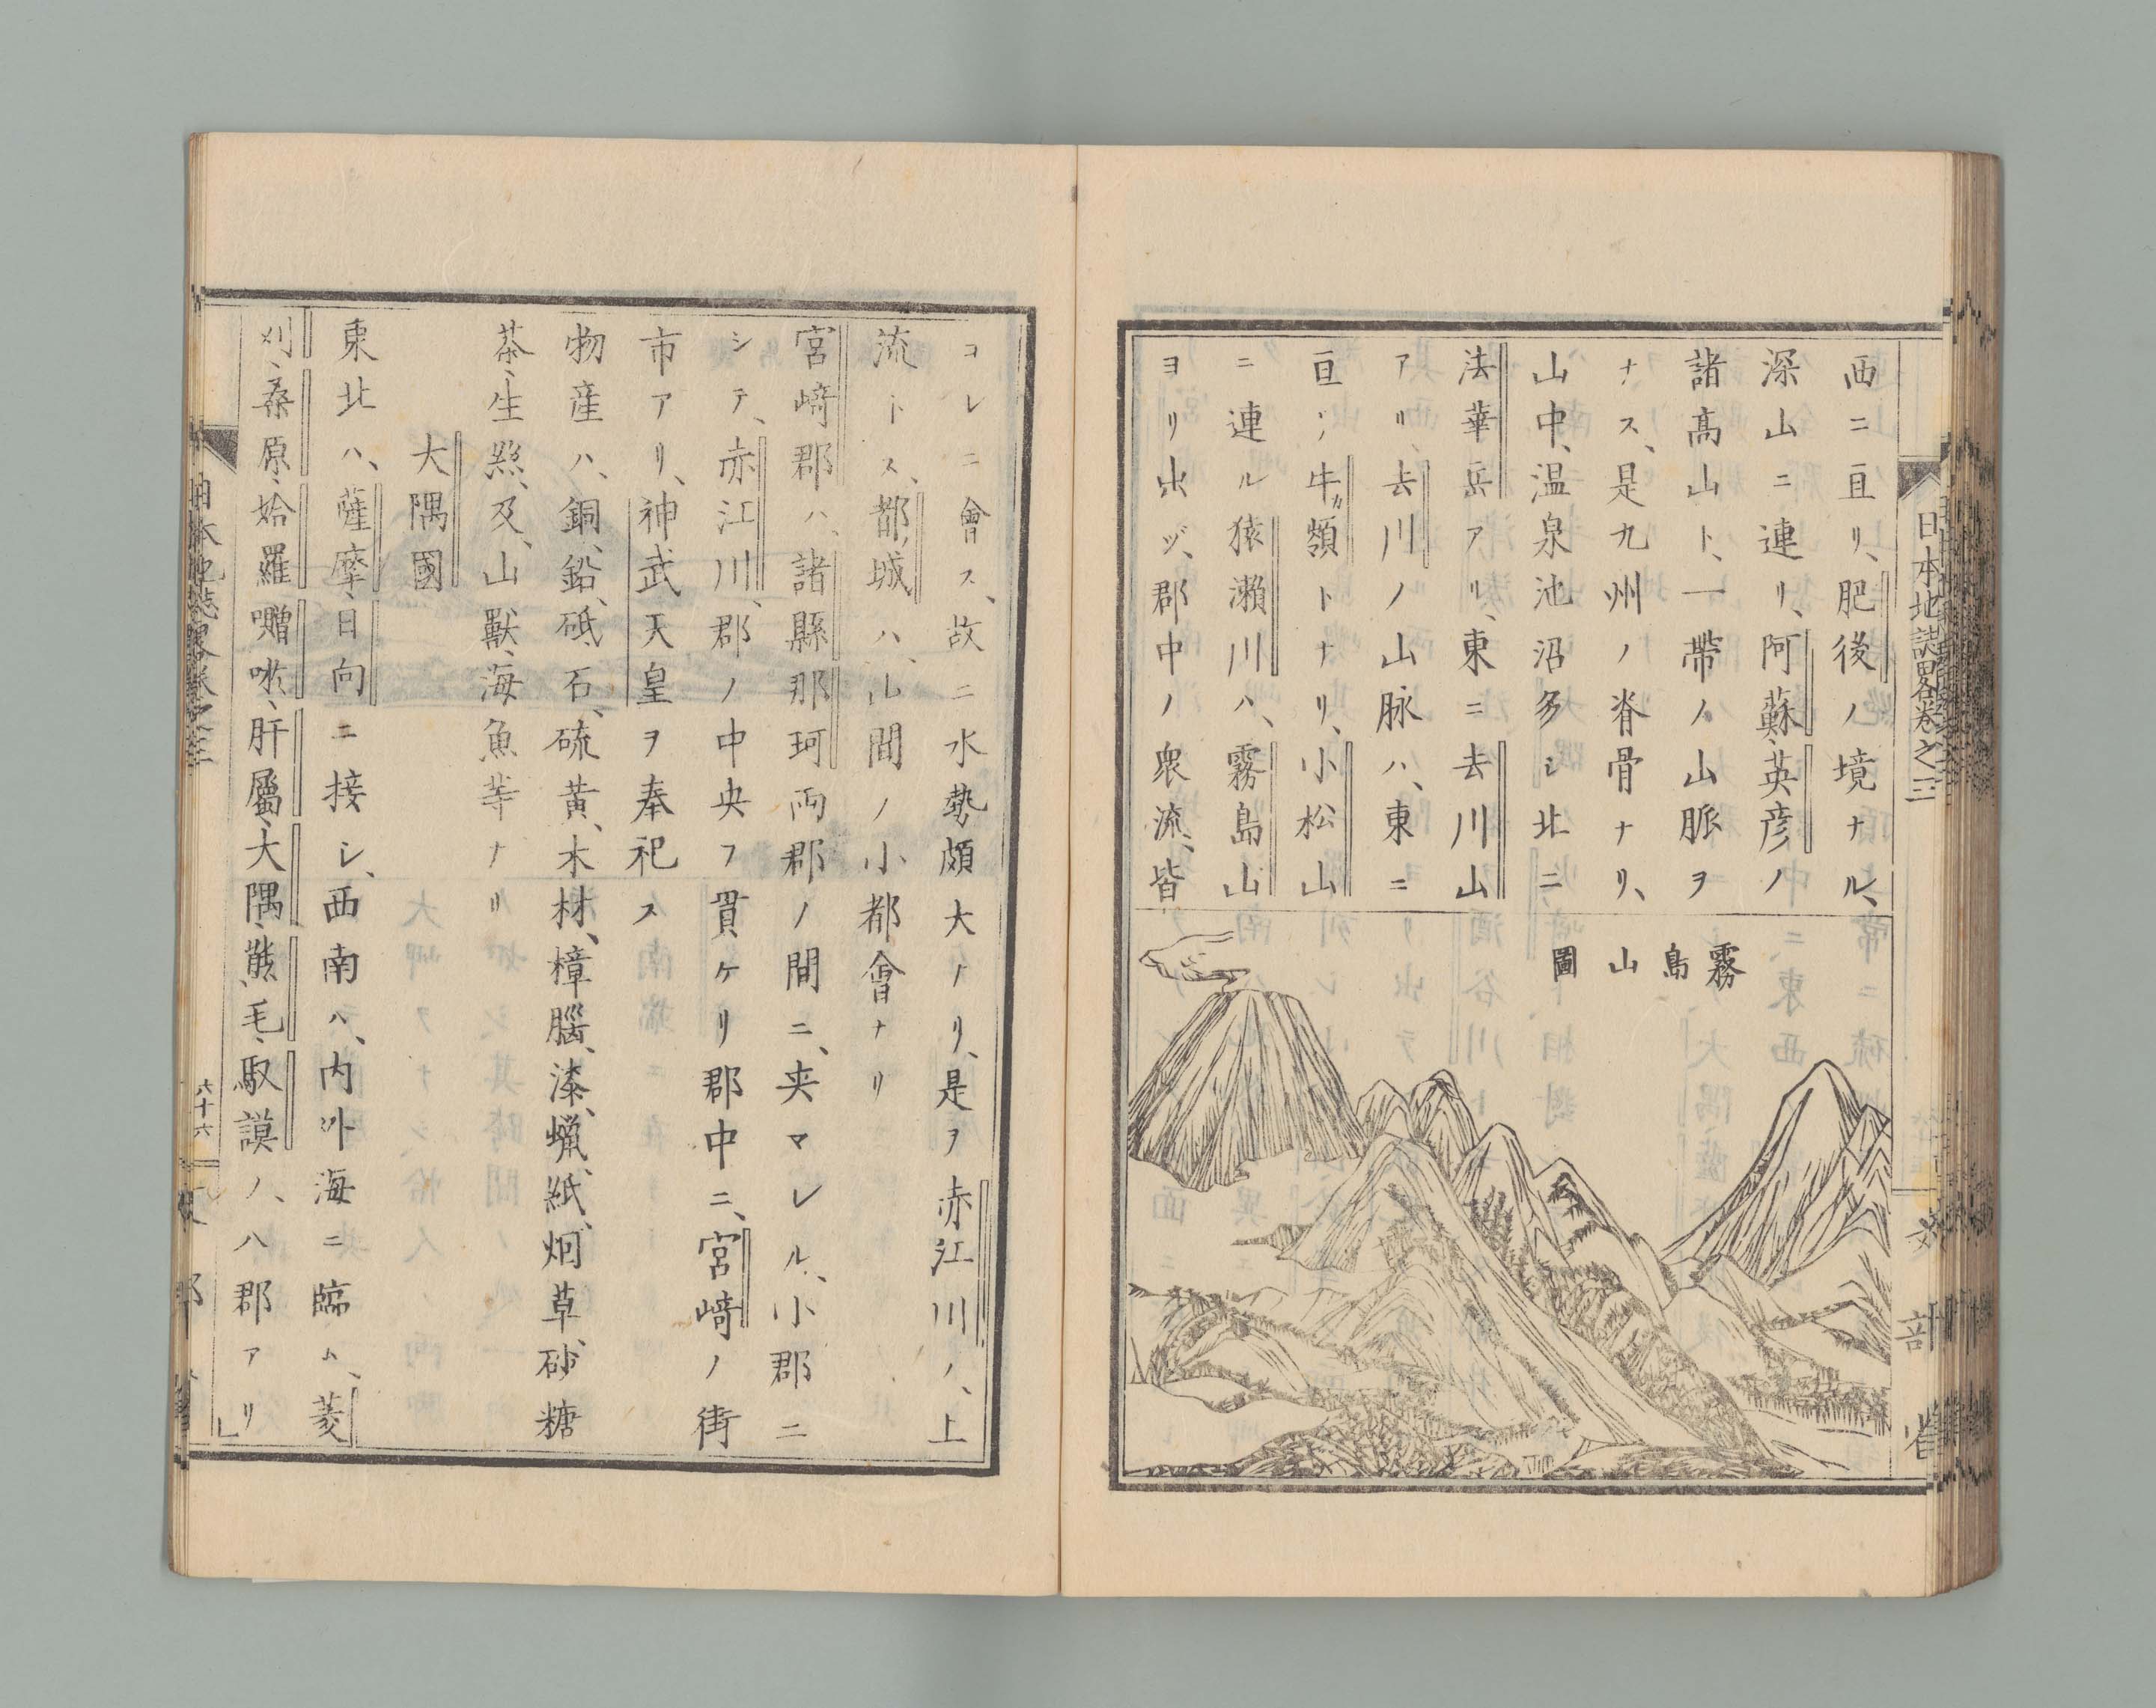 西ニ亘リ、肥後ノ境ナル、
深山ニ連リ、阿蘇、英彦ノ
諸髙山ト、一帶ノ山脈ヲ
ナス、是九州ノ脊骨ナリ、
山中、温泉池沼多シ北ニ
法華岳アリ、東ニ去川山
アリ去川ノ山脉ハ、東ニ
亘リ牛カ嶺トナリ、小松山
ニ連ル猿瀬川ハ、霧島山
ヨリ出ヅ、郡中ノ衆流、皆
霧島山圖
日本地誌畧卷之三
コレニ會ス、故ニ水勢頗大ナリ、是ヲ赤江川ノ、上
流トス、都ノ城ハ、山間ノ小都會ナリ
宮﨑郡ハ、諸縣那珂両郡ノ間ニ、夹マレル、小郡ニ
シテ、赤江川、郡ノ中央ヲ貫ケリ郡中ニ、宮﨑ノ街
市アリ、神武天皇ヲ奉祀ス
物産ハ、銅、鉛、砥石、硫黃、木材、樟腦、漆、蠟、紙、烟草、砂糖
茶、生𤋱、及、山獸、海魚等ナリ
大隅國
東北ハ、薩摩、日向ニ接シ、西南ハ、内外海ニ臨ム、菱
刈、桑原、姶羅、囎唹、肝屬、大隅、熊毛、馭謨ノ、八郡アリ
日本地誌畧卷之三
六十六
文部省